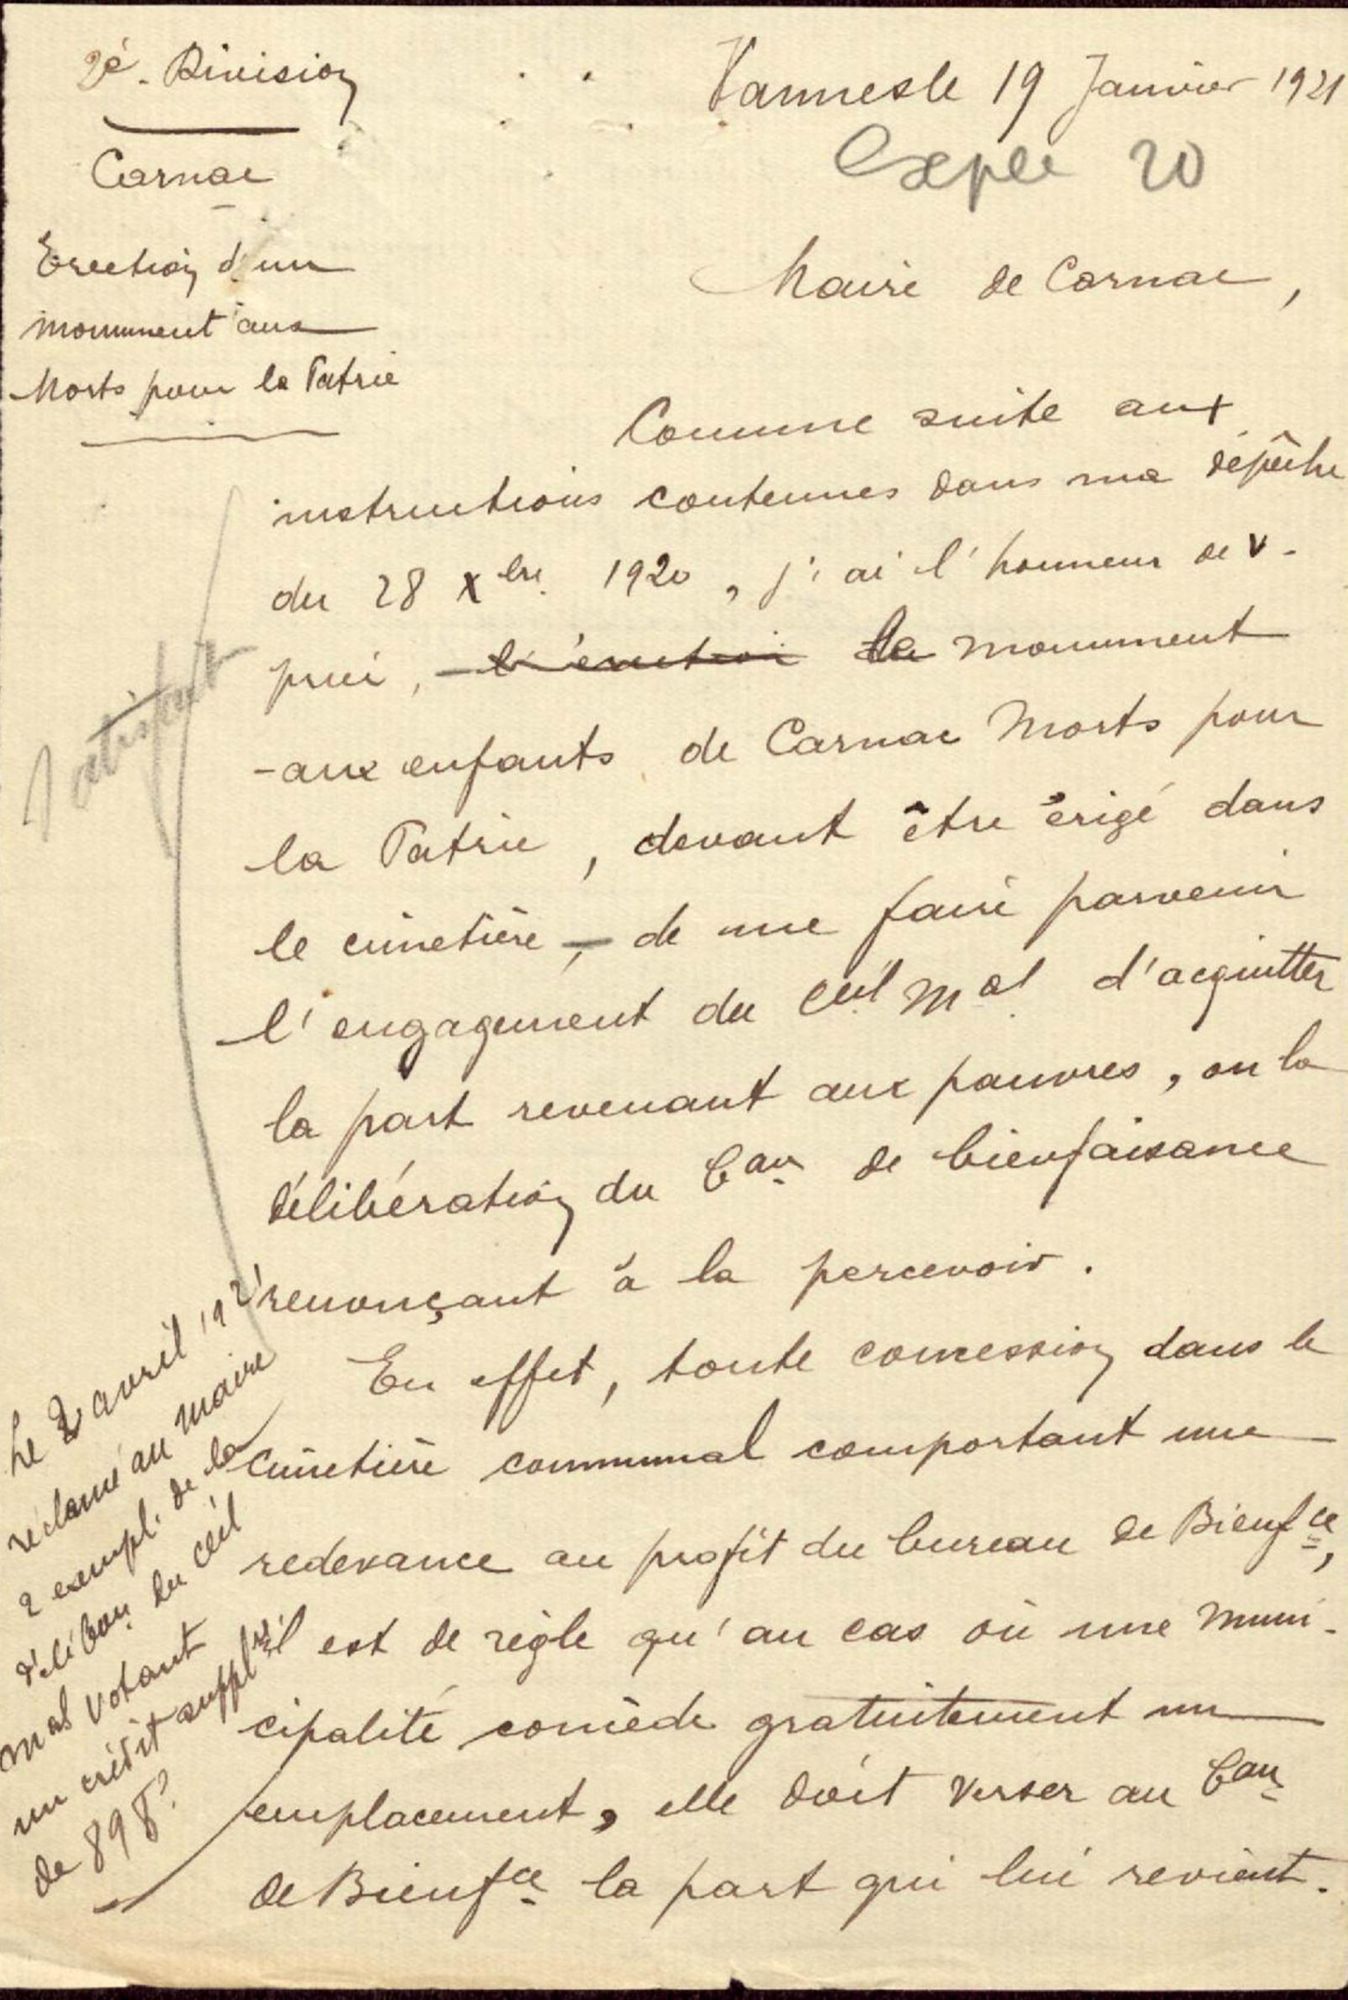 2è. Division
Carnac
Erection d'un
monument aux
Morts pour la Patrie
Vannes le 19 Janvier 1921
Expée 20
Maire de Carnac,
Comme suite aux
instructions contenues dans ma dépêche
du 28 Xbre 1920, j'ai l'honneur de v.
prier, l'érection le monument
aux enfants de Carnac Morts pour
la Patrie, devant être érigé dans
le cimetière, de me faire parvenir
l'engagement du Ceil Mal d'acquitter
la part revenant aux pauvres, ou la
délibération du Bau de bienfaisance
renonçant à la percevoir.
En effet, toute concession dans le
cimetière communal comportant une
redevance au profit du bureau de Bienfce,
il est de règle qu'au cas où une muni-
cipalité concède gratuitement un
emplacement, elle doit verser au Bau
de Bienfce la part qui lui revient.
Satisfait
Le 2 avril 1921
réclamé au maire
2 exempl. de la
délibon du Ceil
mal votant
un crédit supplre
de 898f